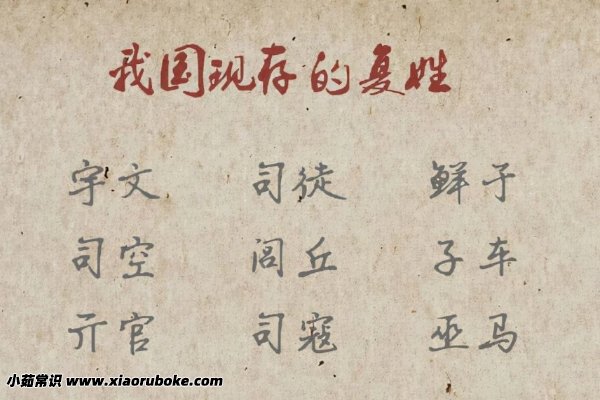 我国现存的复姓
宇文 司徒 鲜于
司空 闾丘 子车
亓官 司寇 巫马
小茹常识 www.xiaoruboke.com